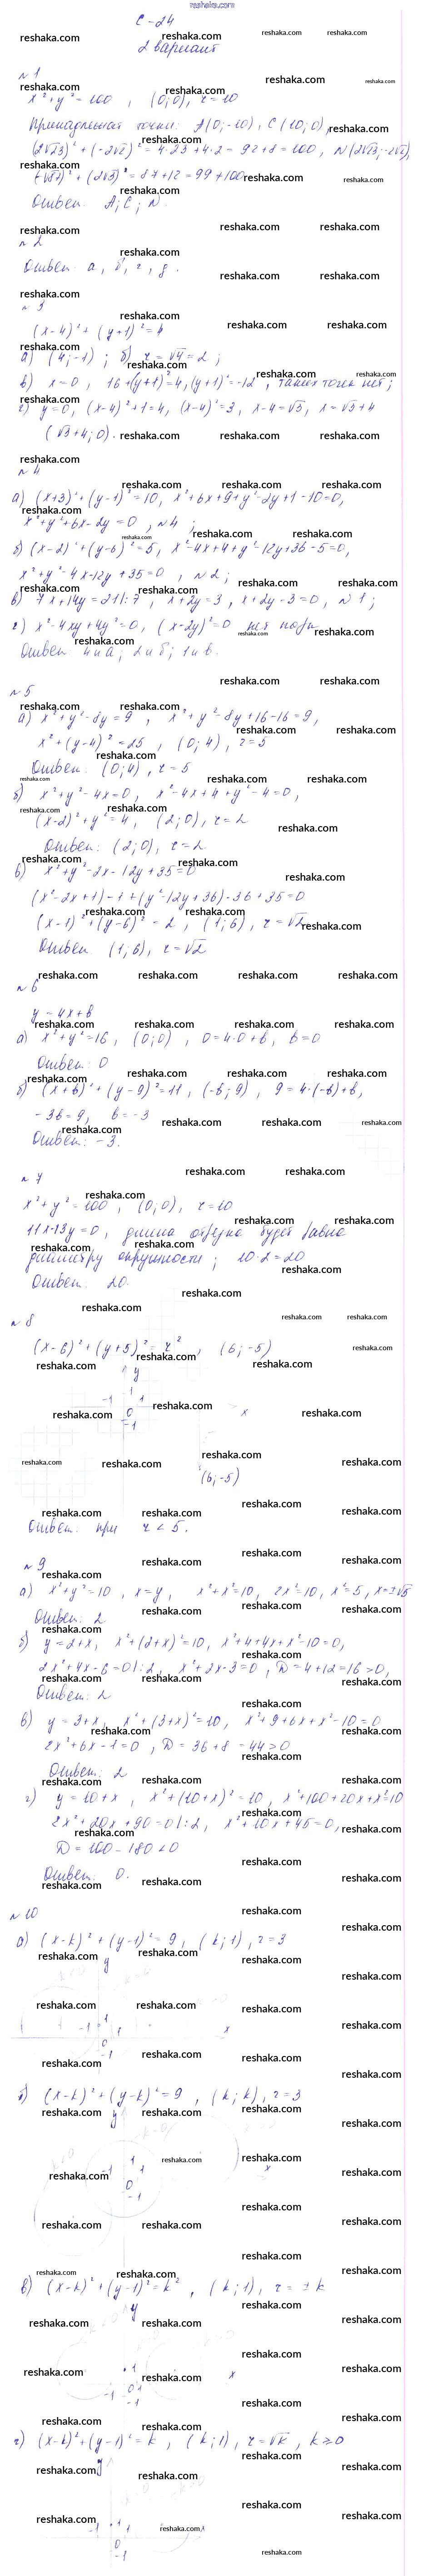 reshaka.com
С-24
2 вариант
№1
x² + y² = 100 , (0;0), r = 10
Принадлежат точки: A(0;-10), C(10;0),
(2√23)² + (-2√2)² = 4·23+4·2 = 92+8 = 100, N(2√23;-2√2),
(-√87)² + (2√3)² = 87+12 = 99 ≠ 100
Ответ: A; C; N.
№2
Ответ: а, б, г, д.
№3
(x-4)² + (y+1)² = 4
а) (4;-1) ; б) r = √4 = 2 ;
в) x=0, 16+(y+1)²=4, (y+1)²=-12, таких точек нет;
г) y=0, (x-4)²+1=4, (x-4)²=3, x-4=√3, x=√3+4
(√3+4; 0).
№4
а) (x+3)² + (y-1)² = 10, x²+6x+9+y²-2y+1-10=0,
x²+y²+6x-2y=0, №4 ;
б) (x-2)² + (y-6)² = 5, x²-4x+4+y²-12y+36-5=0,
x²+y²-4x-12y+35=0 , №2 ;
в) 7x+14y=21 |:7, x+2y=3, x+2y-3=0, №1 ;
г) x²-4xy+4y²=0, (x-2y)²=0 нет пары
Ответ: 4 и а; 2 и б; 1 и в.
№5
а) x²+y²-8y=9 , x²+y²-8y+16-16=9,
x²+(y-4)²=25, (0;4), r=5
Ответ: (0;4), r=5
б) x²+y²-4x=0, x²-4x+4+y²-4=0,
(x-2)²+y²=4, (2;0), r=2
Ответ: (2;0), r=2
в) x²+y²-2x-12y+35=0
(x²-2x+1)-1+(y²-12y+36)-36+35=0
(x-1)²+(y-6)²=2, (1;6), r=√2
Ответ: (1;6), r=√2
№6
y=4x+b
а) x²+y²=16, (0;0), 0=4·0+b, b=0
Ответ: 0
б) (x+b)²+(y-9)²=11, (-b;9), 9=4·(-b)+b,
-3b=9, b=-3
Ответ: -3.
№7
x²+y²=100, (0;0), r=10
11x-13y=0, длина отрезка будет равна
диаметру окружности; 10·2=20
Ответ: 20.
№8
(x-6)²+(y+5)²=r², (6;-5)
y
1
-1 0 1 x
-1
(6;-5)
Ответ: при r<5.
№9
а) x²+y²=10, x=y, x²+x²=10, 2x²=10, x²=5, x=±√5
Ответ: 2
б) y=2+x, x²+(2+x)²=10, x²+4+4x+x²-10=0,
2x²+4x-6=0 |:2, x²+2x-3=0, D=4+12=16>0,
Ответ: 2
в) y=3+x, x²+(3+x)²=10, x²+9+6x+x²-10=0
2x²+6x-1=0, D=36+8=44>0
Ответ: 2
г) y=10+x, x²+(10+x)²=10, x²+100+20x+x²=10
2x²+20x+90=0 |:2, x²+10x+45=0,
D=100-180<0
Ответ: 0.
№10
а) (x-k)²+(y-1)²=9, (k;1), r=3
y
-1 0 1 x
-1
б) (x-k)²+(y-k)²=9, (k;k), r=3
y
-1 0 1 x
-1
в) (x-k)²+(y-1)²=k², (k;1), r=±k
y
-1 0 1 x
-1
г) (x-k)²+(y-1)²=k, (k;1), r=√k, k≥0
y
-1 0 1
-1